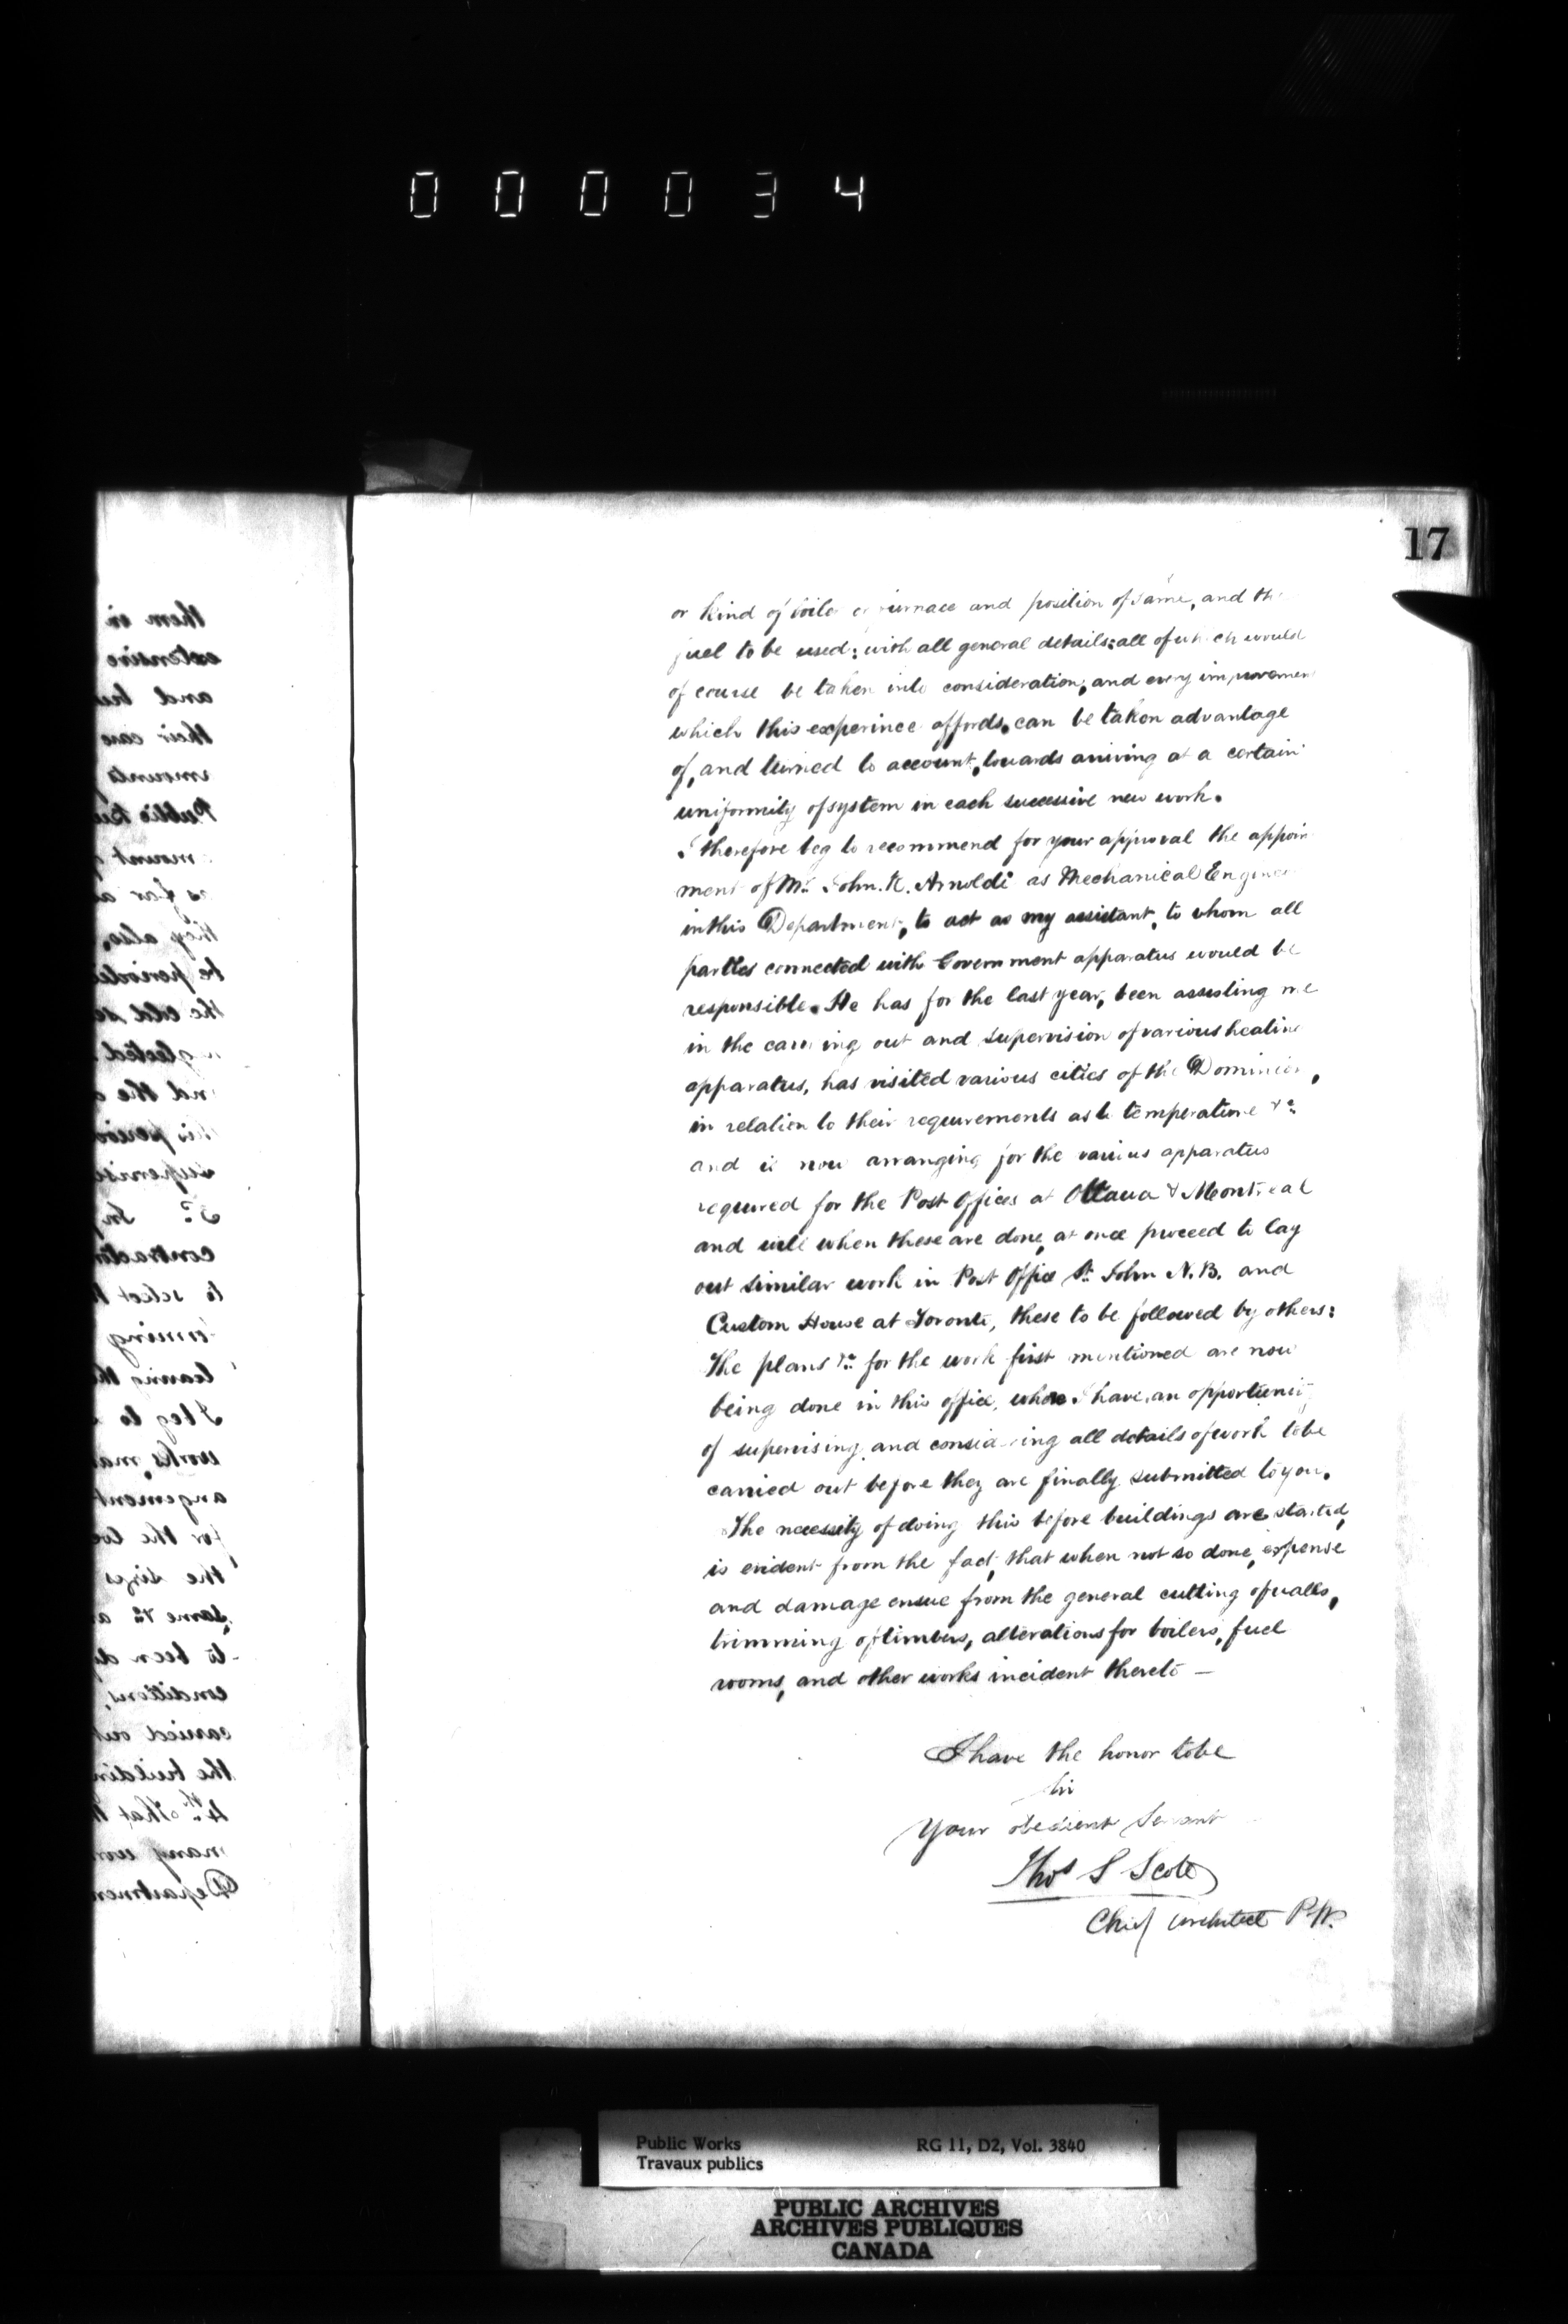 000034
17
or kind of boile or furnace and position of same, and the
fuel to be used: with all general details: all of which would
of course be taken into consideration, and every improvemen
which this experince affords, can be taken advantage
of, and turned to account, towards arriving at a certain
uniformity of system in each successive new work.
I therefore beg to recommend for your approval the appoin
ment of Mr. John. R. Arnoldi as Mechanical Engineer
in this Department, to act as my assistant, to whom all
parties connected with Government apparatus would be
responsible. He has for the last year, been assisting me
in the carrying out and supervision of various heating
apparatus, has visited various cities of the Dominion,
in relation to their requirements as to temperature &c.
and is now arranging for the various apparatus
required for the Post Offices at Ottawa & Montreal
and will when these are done, at once proceed to lay
out similar work in Post Office St. John N.B. and
Custom House at Toronto, these to be followed by others:
The plans &c. for the work first mentioned are now
being done in this office, where I have an opportunity
of supervising, and considering all details of work to be
carried out before they are finally submitted to you.
The necessity of doing this before buildings are started,
is evident from the fact, that when not so done, expense
and damage ensue from the general cutting of walls,
trimming of timbers, alterations for boilers, fuel
rooms, and other works incident thereto —
I have the honor to be
Sir
Your obedient Servant
Thos S Scott
Chief Architect P.W.
Public Works
Travaux publics
RG 11, D2, Vol. 3840
PUBLIC ARCHIVES
ARCHIVES PUBLIQUES
CANADA